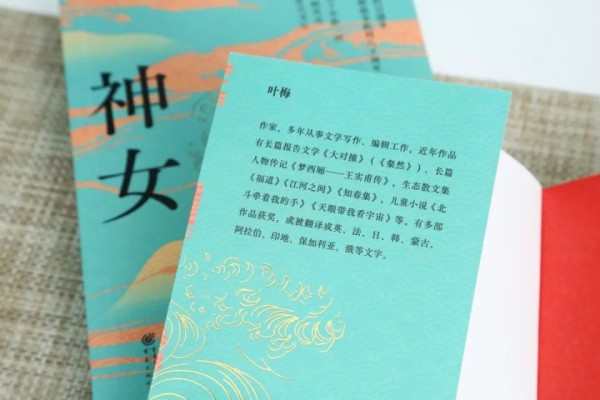 神女
叶梅
作家，多年从事文学写作、编辑工作，近年作品
有长篇报告文学《大对撞》（《粲然》）、长篇
人物传记《梦西厢——王实甫传》，生态散文集
《福道》《江河之间》《知春集》，儿童小说《北
斗牵着我的手》《天眼带我看宇宙》等。有多部
作品获奖，或被翻译成英、法、日、韩、蒙古、
阿拉伯、印地、保加利亚、俄等文字。